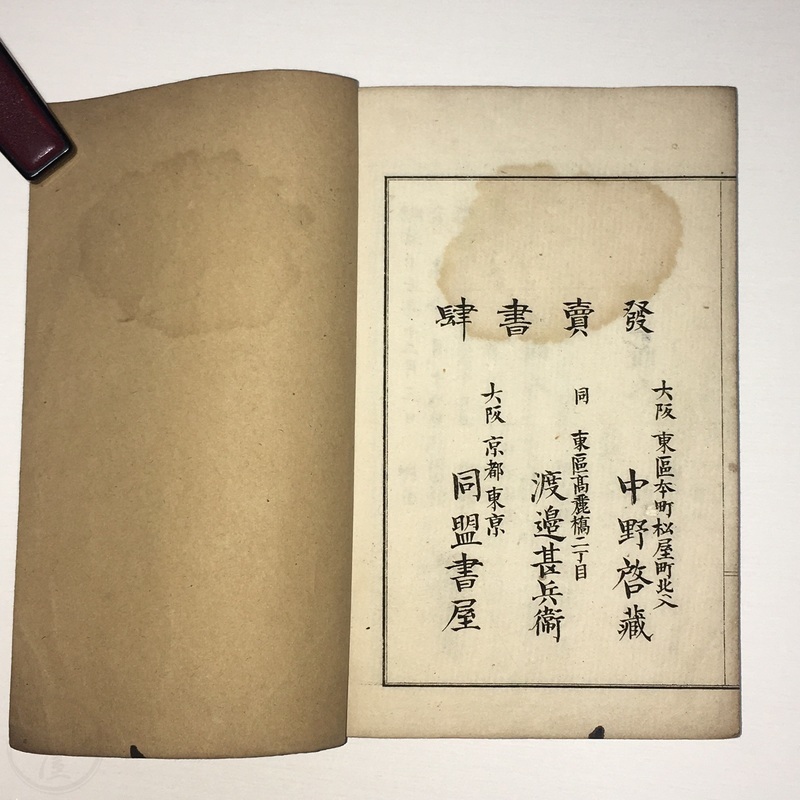 發賣書肆
大阪 東區本町松屋町北入
中野啓藏
同 東區高麗橋二丁目
渡邉甚兵衞
大阪 京都 東京
同盟書屋